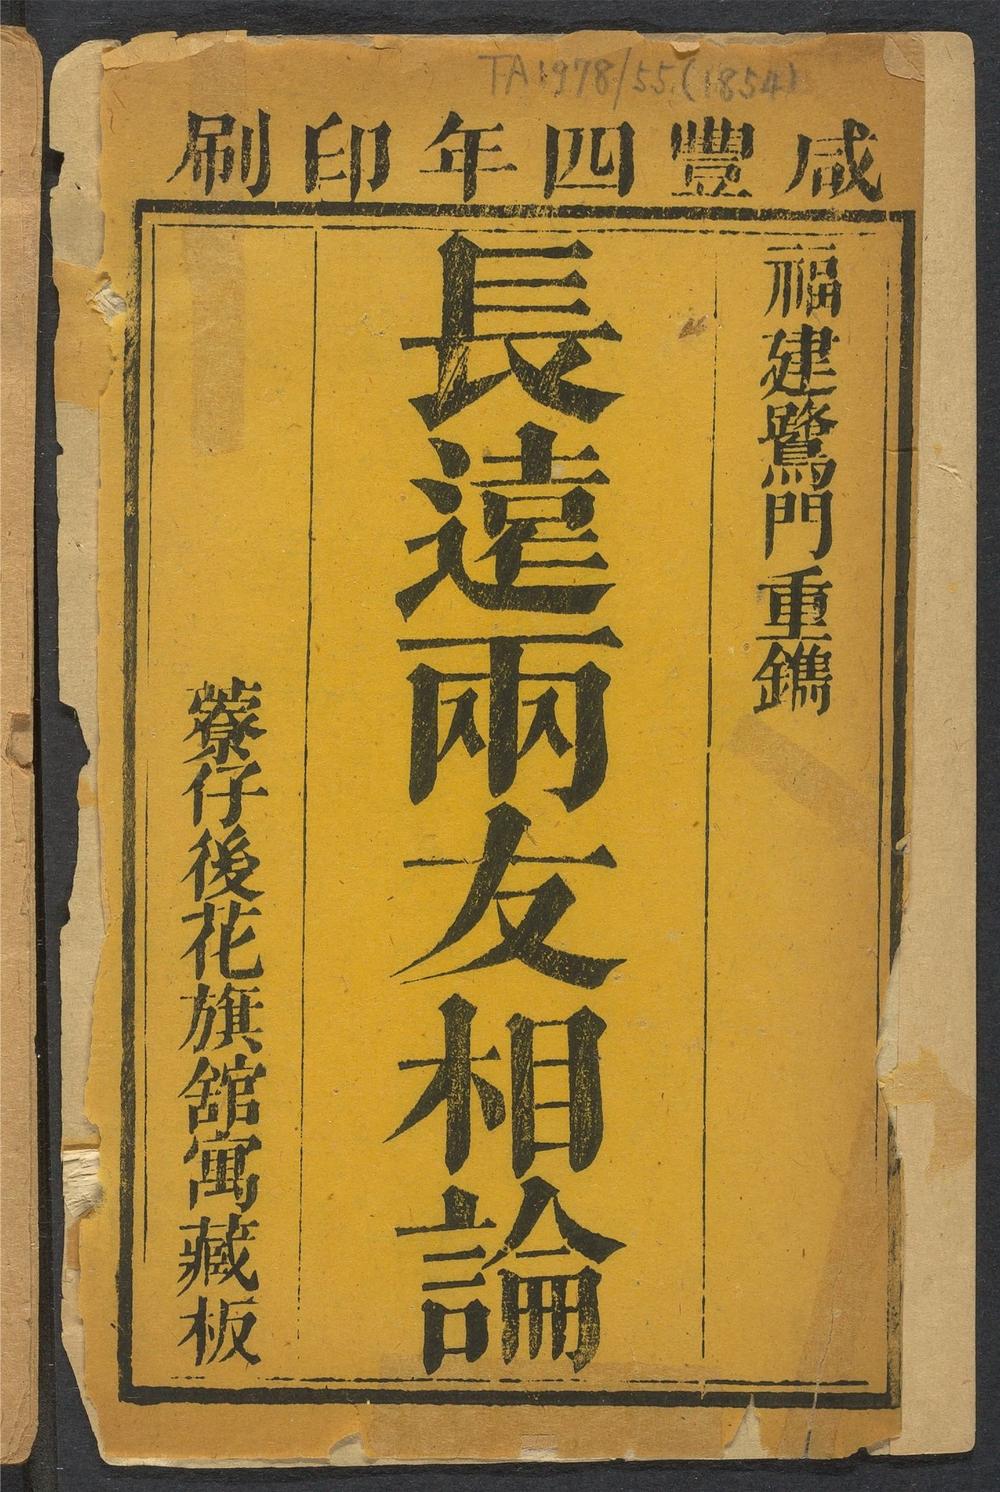 TA 1978/55.(1854)
咸豐四年印刷
福建鷺門重鐫
長遠兩友相論
藔仔後花旗舘寓藏板